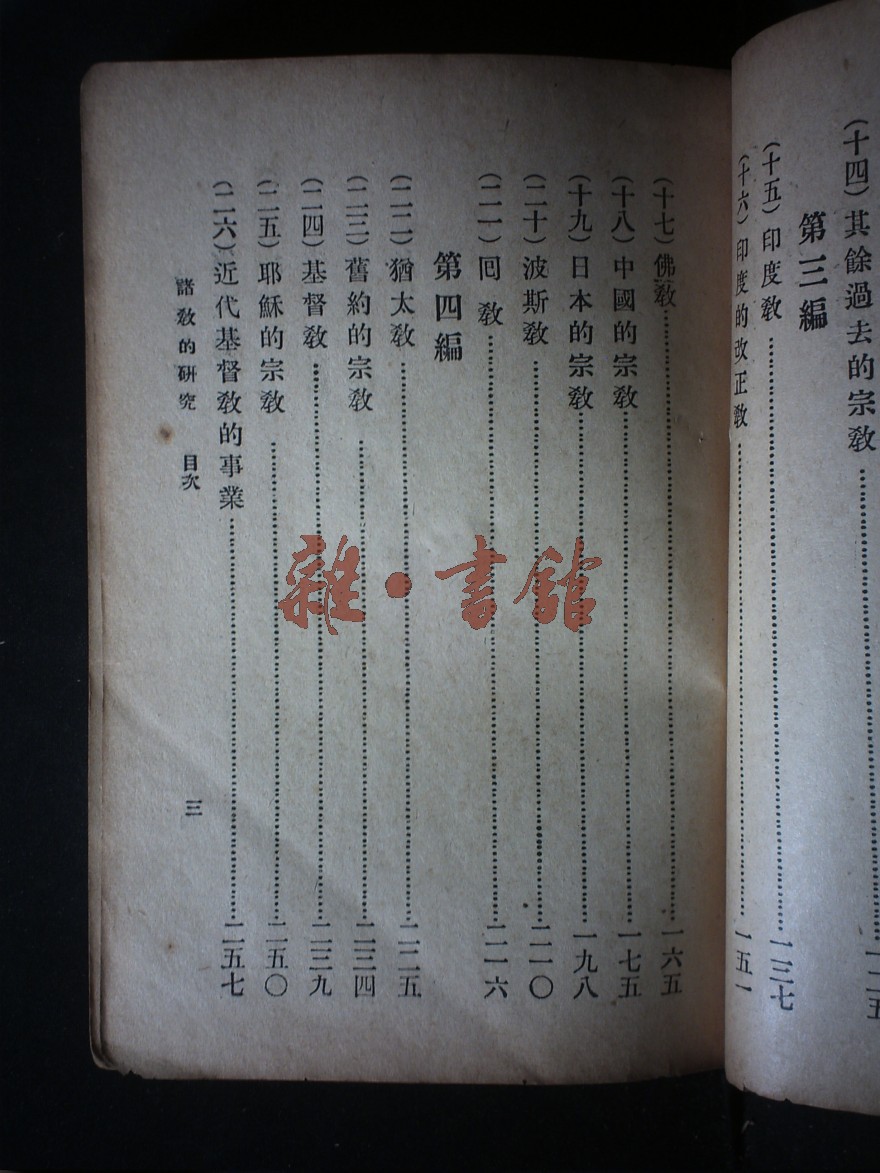 (十四)其餘過去的宗敎……一二五
第三編
(十五)印度敎……一三七
(十六)印度的改正敎……一五一
(十七)佛敎……一六五
(十八)中國的宗敎……一七五
(十九)日本的宗敎……一九八
(二十)波斯敎……二一〇
(二一)回敎……二一六
第四編
(二二)猶太敎……二二五
(二三)舊約的宗敎……二三四
(二四)基督敎……二三九
(二五)耶穌的宗敎……二五〇
(二六)近代基督敎的事業……二五七
諸敎的研究 目次 三
雜·書館